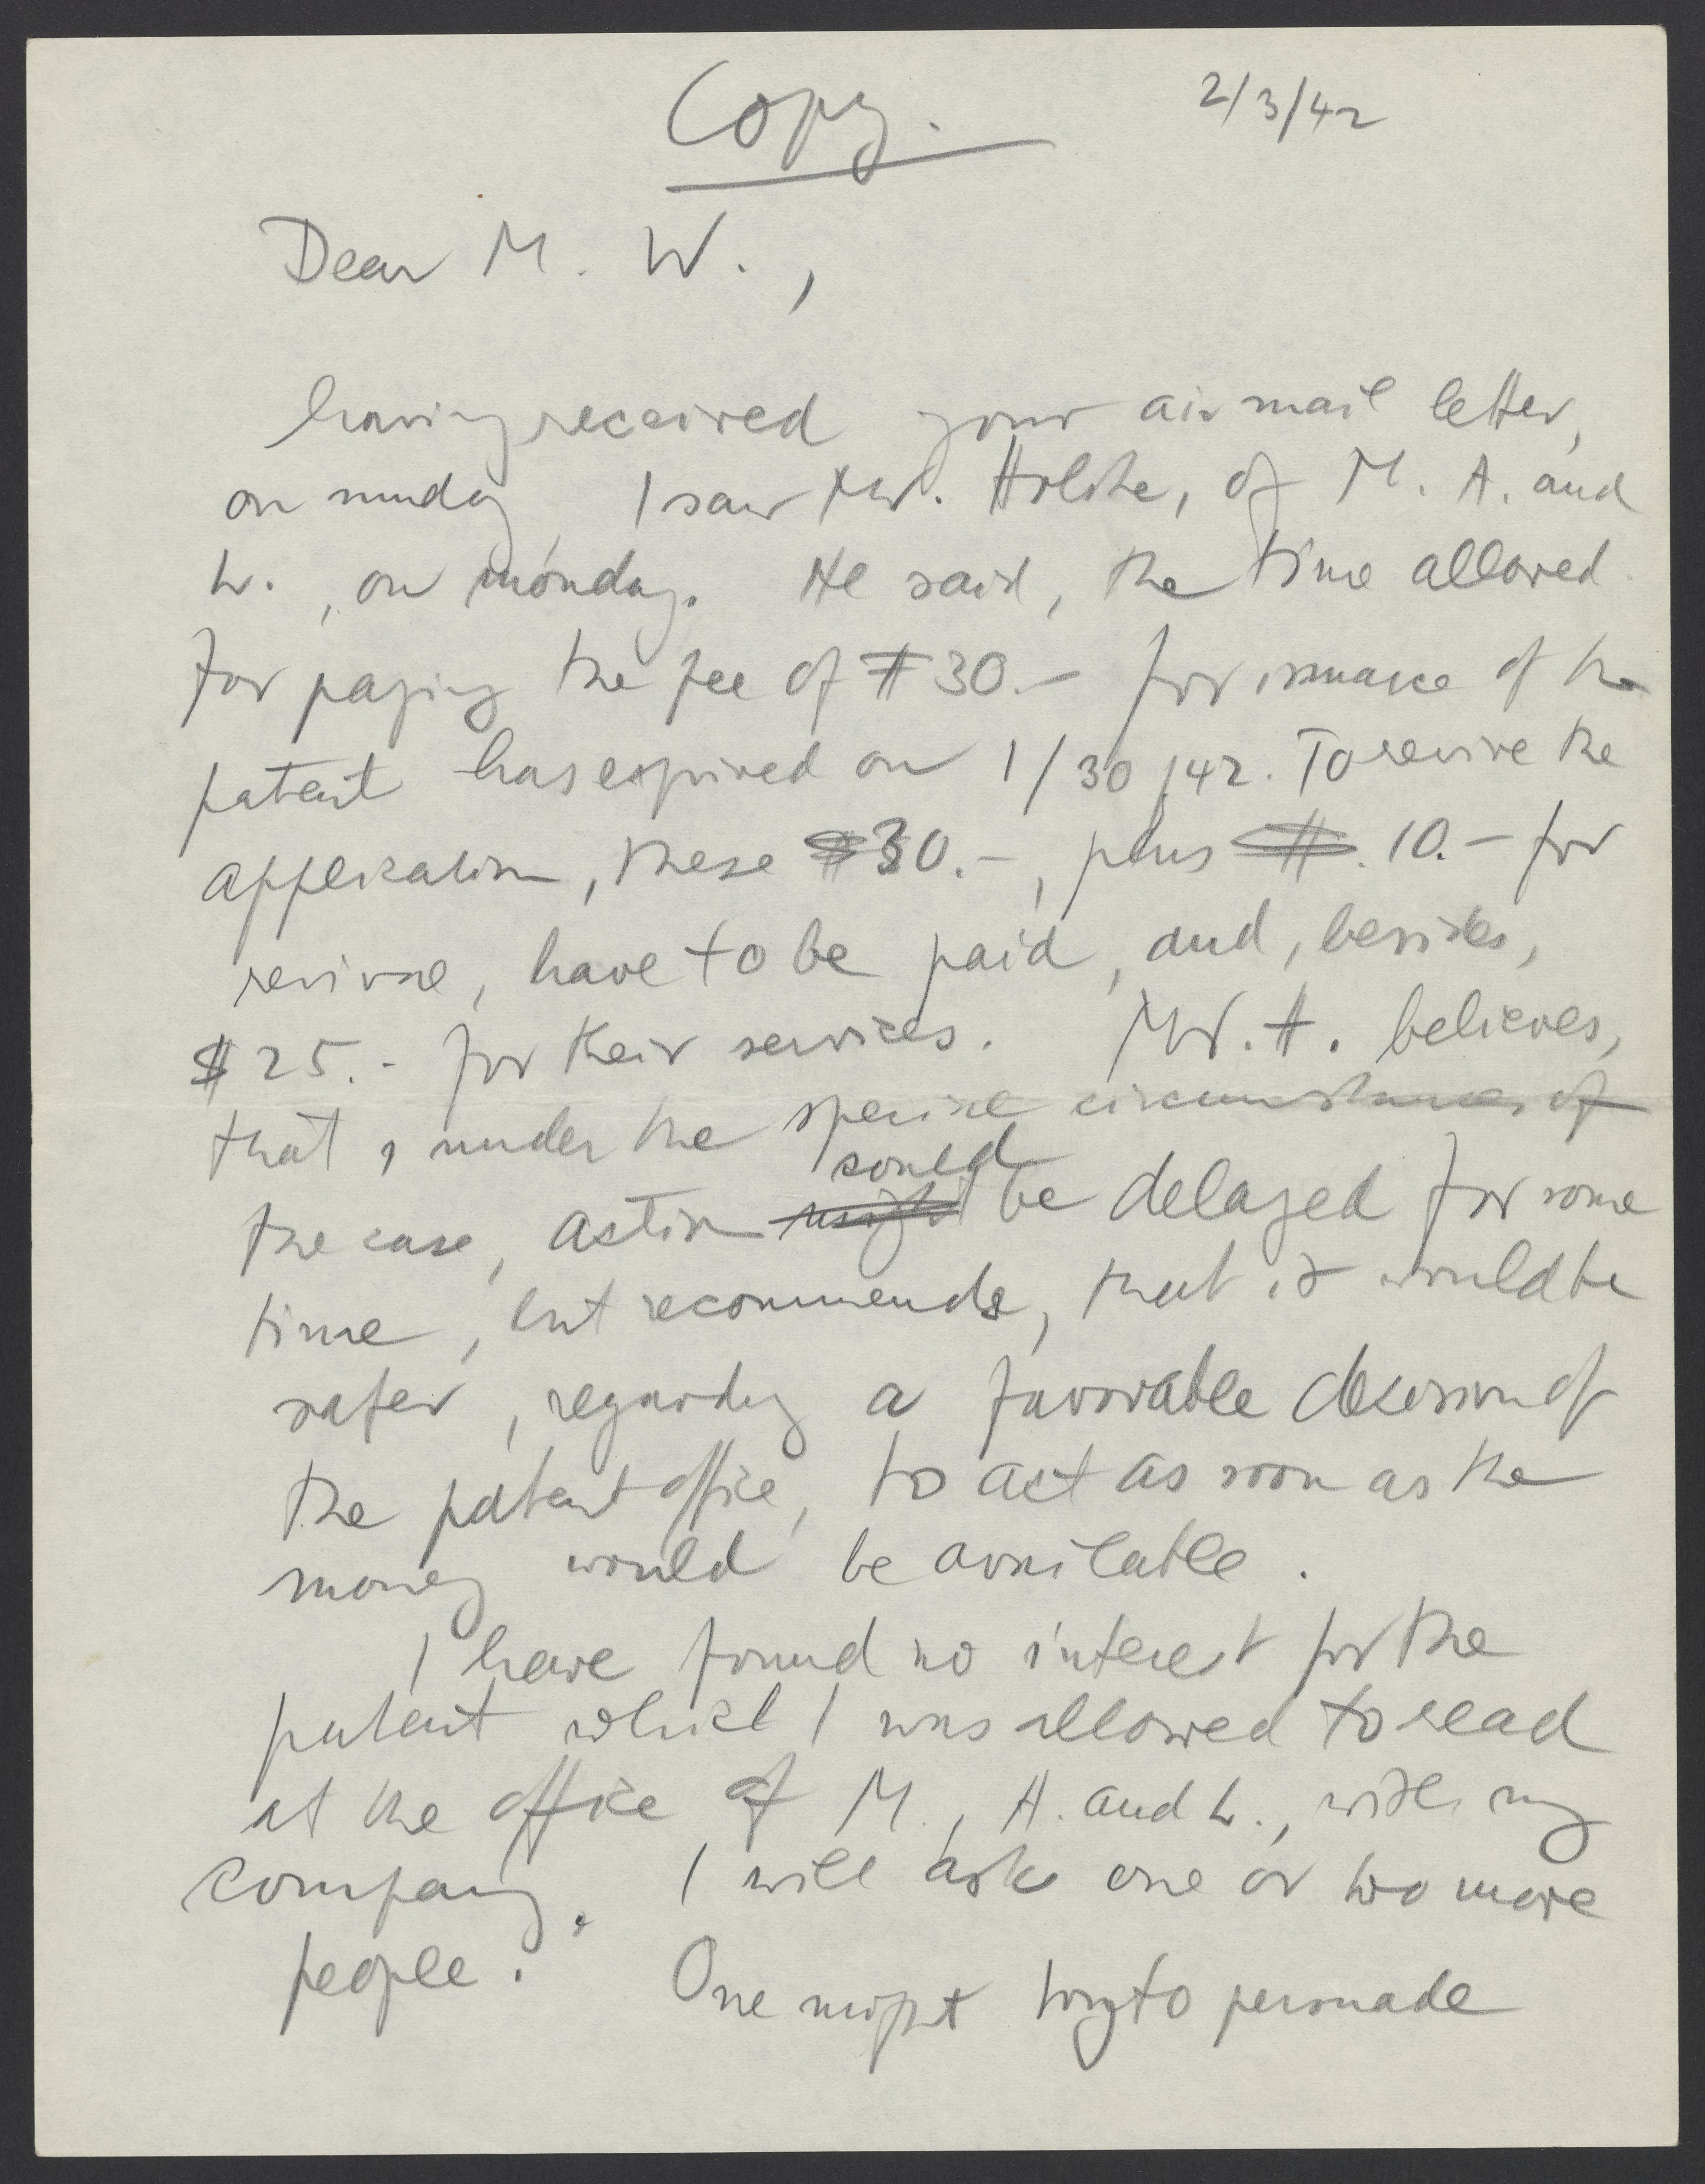 Copy.
2/3/42
Dear M. W.,
having received your airmail letter,
on sunday I saw Mr. of M. A. and
L., on monday. He said, the time allowed
for paying the fee of $30.- for issuance of the
patent has expired on 1/30/42. To revive the
application, these $30.-, plus $. 10.- for
have to be paid, and, besides,
$25.- for their services. Mr. H. believes,
that, under the special circumstances of
the case, action could
might be delayed for some
time, but recommends, that it would be
safer, regarding a favorable decision of
the patent office, to act as soon as the
money would be available.
I have found no interest for the
patent which I was allowed to read
at the office of M., A. and L., with my
company. I will ask one or two more
people. One might try to persuade